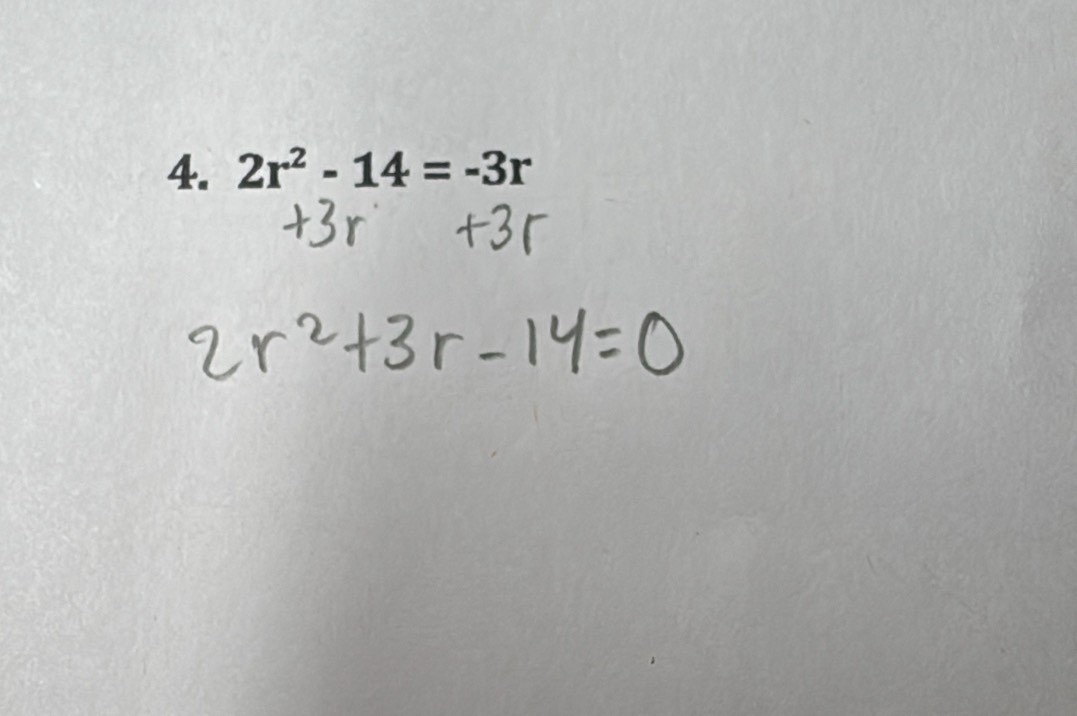 4. 2r² - 14 = -3r
+3r +3r
2r²+3r-14=0